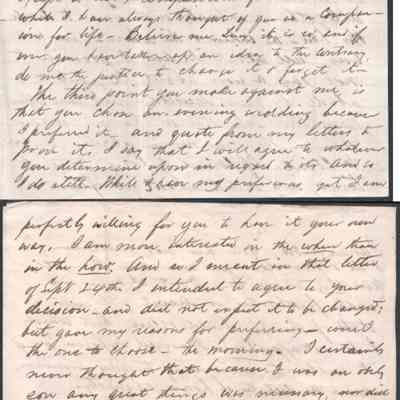 while I have always thought of you as a compan-
ion for life – Believe me, Lin, it is so, and if
ever you have taken up an idea to the contrary
do me the justice to change it & forget it –
The third point you make against me is
that you chose an evening wedding because
I preferred it – and quote from my letters to
prove it. I say that I will agree to whatever
you determine upon in regard to it, and so
I do still. While I have my preference, yet I am
perfectly willing for you to have it your own
way. I am more interested in the when than
in the how. And so I meant in that letter
of Sept 24th I intended to agree to your
decision – and did not expect it to be changed;
but gave my reasons for preferring – were
the one to choose – the morning – I certainly
never thought that because I was an only
son any great things was necessary nor did